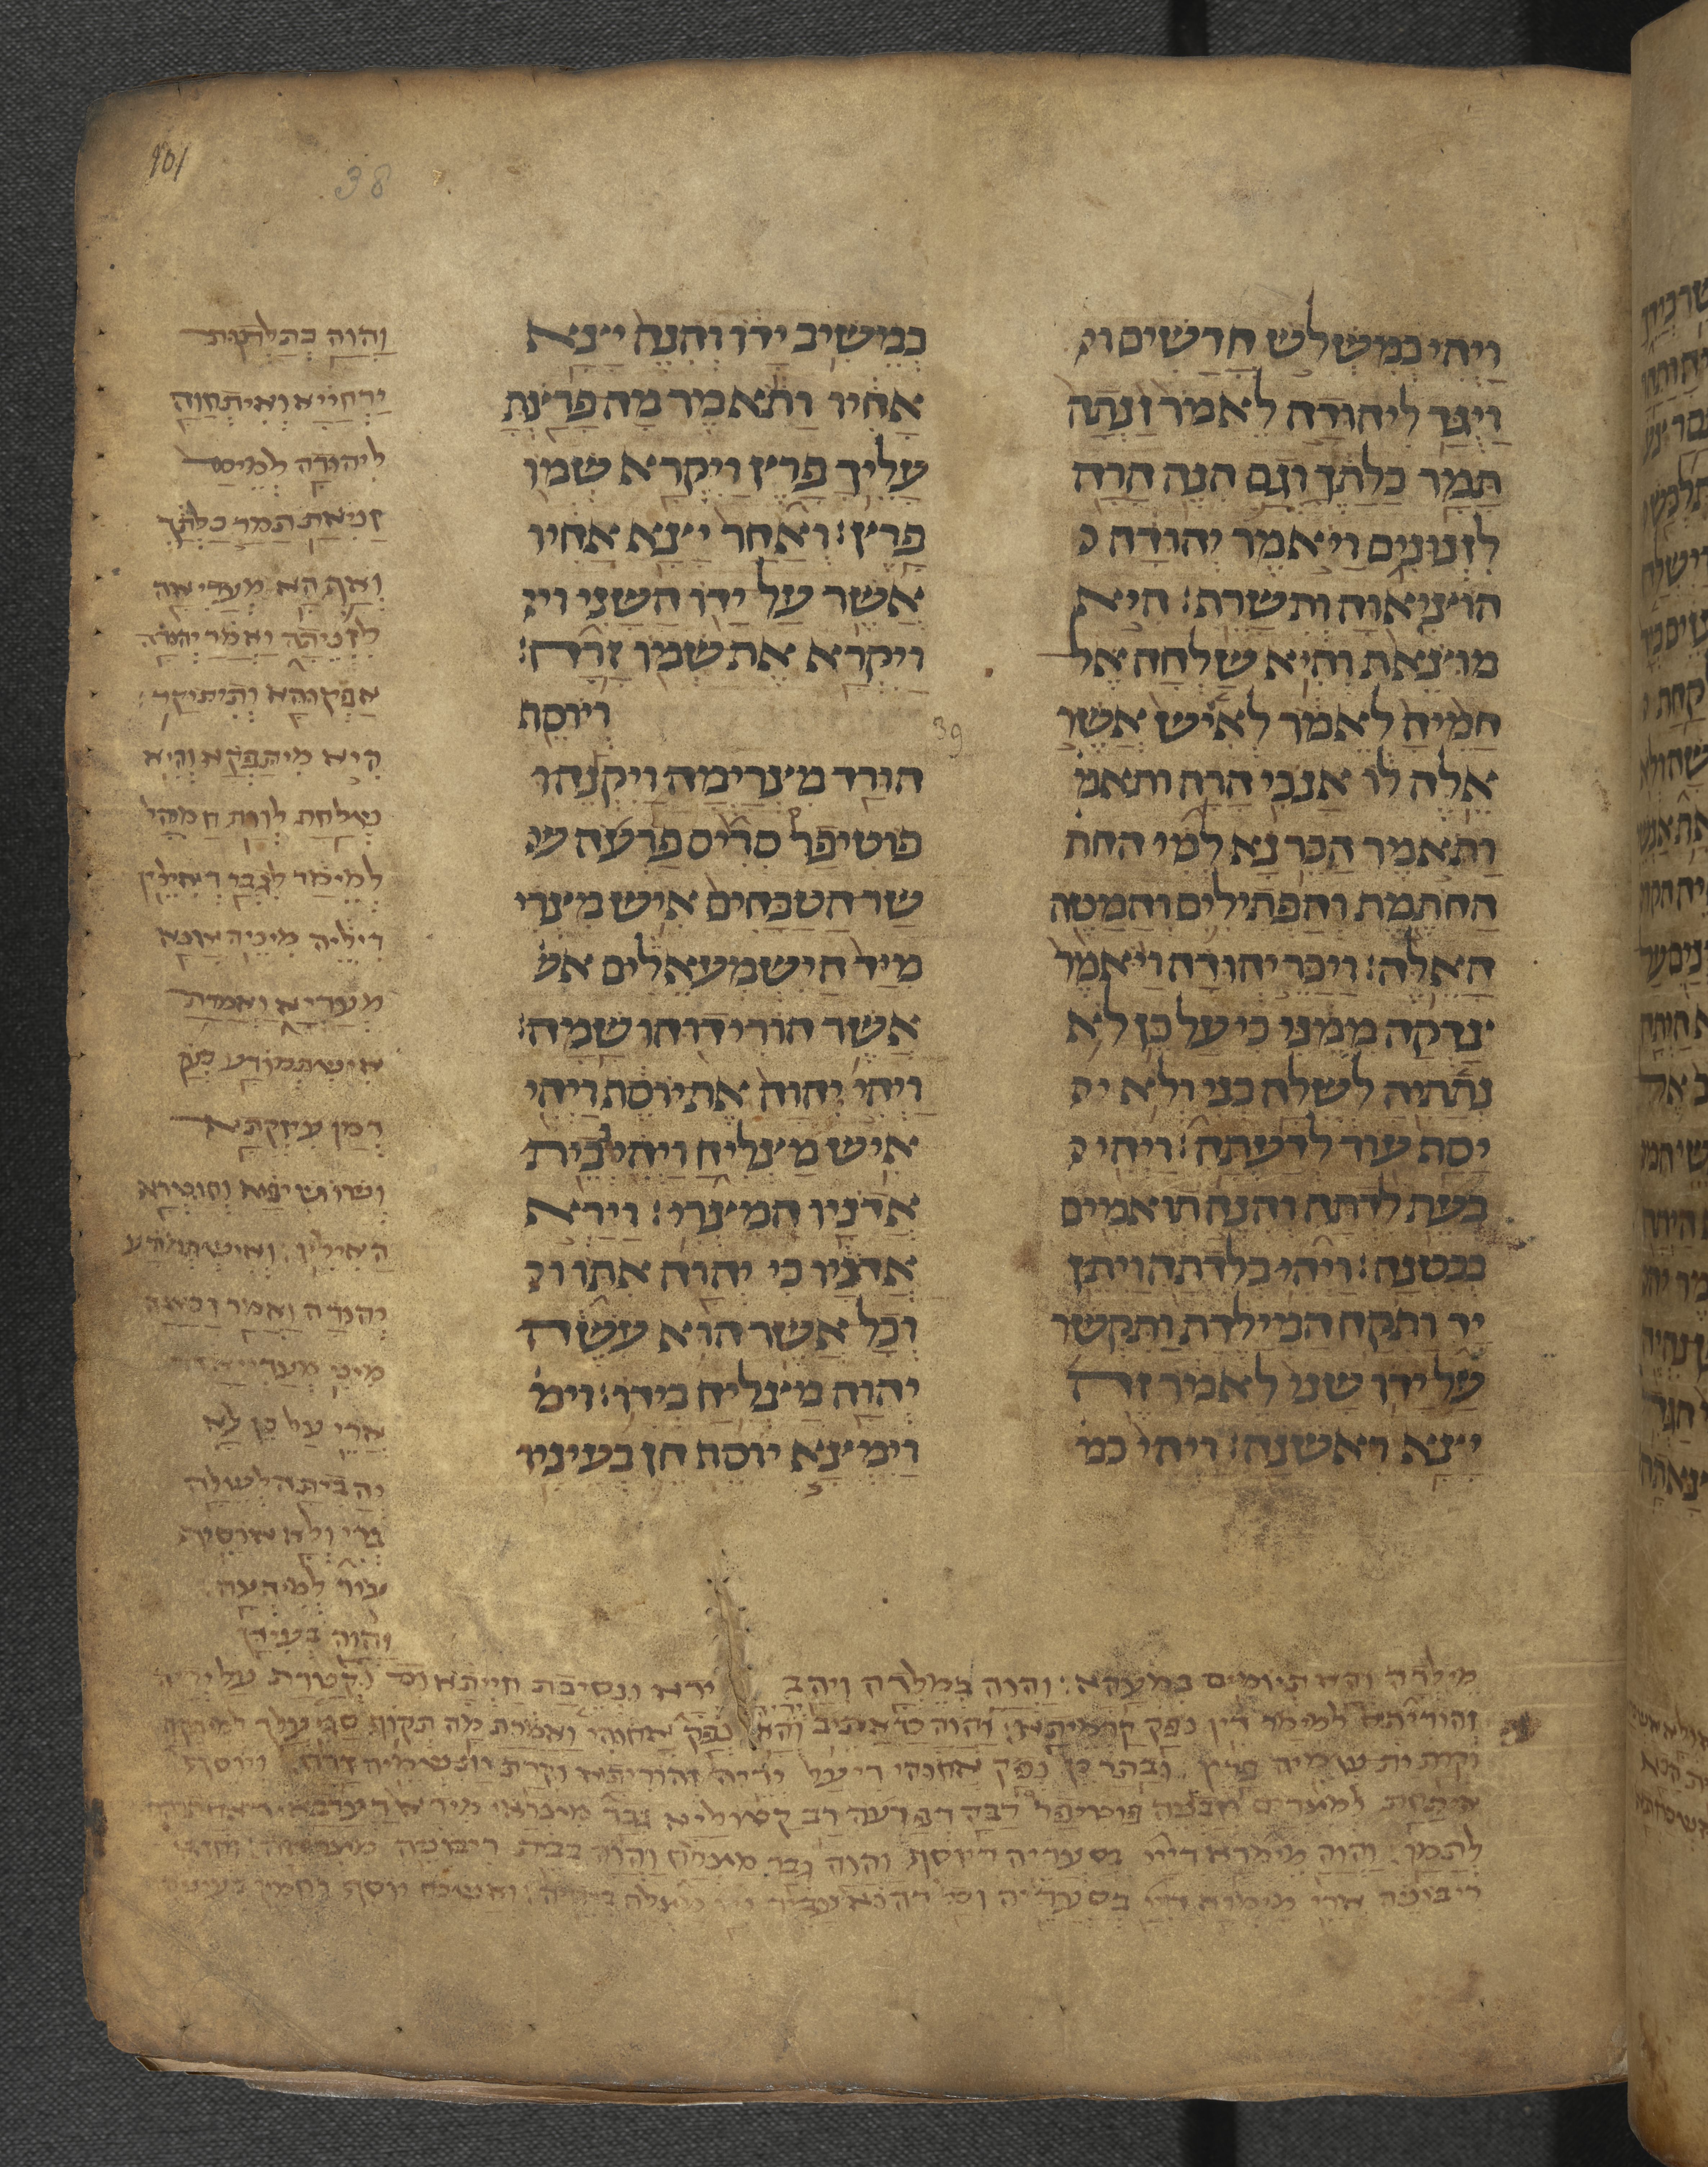 101
38
ויהי כמשלש חדשים וי
ויגד ליהודה לאמר זנתה
תמר כלתך וגם הנה הרה
לזנונים ויאמר יהודה
הוציאוה ותשרף׃ היא
מוצאת והיא שלחה אל
חמיה לאמר לאיש אשר
אלה לו אנכי הרה ותאמ
ותאמר הכר נא למי החת
החתמת והפתילים והמטה
האלה׃ ויכר יהודה ויאמר
צדקה ממני כי על כן לא
נתתיה לשלה בני ולא י
יסף עוד לדעתה׃ ויהי
בעת לדתה והנה תואמים
בבטנה׃ ויהי בלדתה ויתן
יד ותקח המילדת ותקשר
על ידו שני לאמר זה
יצא ראשנה׃ ויהי כמ
כמשיב ידו והנה יצא
אחיו ותאמר מה פרצת
עליך פרץ ויקרא שמו
פרץ׃ ואחר יצא אחיו
אשר על ידו השני ויק
ויקרא את שמו זרח׃
39
ויוסף
הורד מצרימה ויקנהו
פוטיפר סריס פרעה ש
שר הטבחים איש מצרי
מיד הישמעאלים אש
אשר הורידוהו שמה׃
ויהי יהוה את יוסף ויהי
איש מצליח ויהי בבית
אדניו המצרי׃ וירא
אדניו כי יהוה אתו וכ
וכל אשר הוא עשה
יהוה מצליח בידו׃ וימ
וימצא יוסף חן בעיניו
והוה כתלתות
ירחייא ואיתחוה
ליהודה למימר
זניאת תמר כלתך
ואף הא מעדיאה
לזניתה ואמר יהודה
אפקוהא ותיתוקד
היא מיתפקא והיא
שלחת לות חמוהי
למימר לגבר דאילין
דיליה מיניה אנא
מעדיא ואמרת
אישתמודע כען
דמן עיזקתא
ושושיפא וחוטרא
האילין ואישתמודע
יהודה ואמר זכאה
מיני מעדייא
ארי על כן לא
יהבתה לשלה
ברי ולא אוסיף
עוד למידעה
והוה בעידן
מילדה והא תיומים במעהא והוה במילדה ויהב ידא ונסיבת חייתא וקטרת על ידיה
זהוריתא למימר דין נפק קדמיתא והוה כד אתיב ידיה והא נפק אחוהי ואמרת מה תקוף סגי עלך למיתקף
וקרת ית שמיה פרץ ובתר כן נפק אחוהי די על ידיה זהוריתא וקרת ית שמיה זרח ויוסף
איתחת למצרים וזבניה פוטיפר רבא דפרעה רב קטוליא גבר מצראי מידא דערבאי דאחתוהי
לתמן והוה מימרא דייי בסעדיה דיוסף והוה גבר מצלח והוה בבית ריבוניה מצראה וחזא
ריבוניה ארי מימרא דייי בסעדיה וכל דהוא עביד ייי מצלח בידיה ואשכח יוסף רחמין בעינוהי